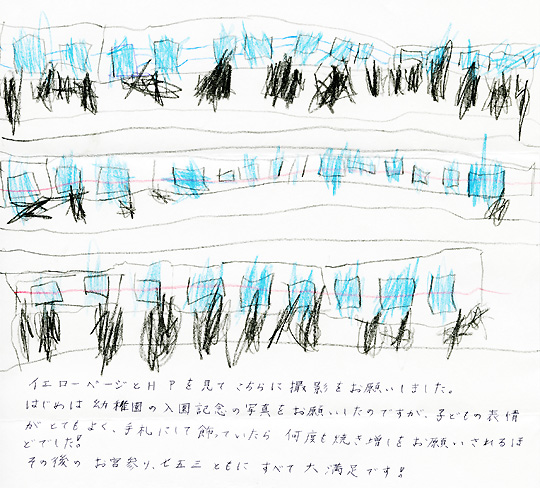 イエローページとHPを見てこちらに撮影をお願いしました。
はじめは幼稚園の入園記念の写真をお願いしたのですが、子どもの表情
がとてもよく、手札にして飾っていたら 何度も焼き増しをお願いされるほ
どでした!!
その後の お宮参り、七五三 ともに すべて 大満足です!!